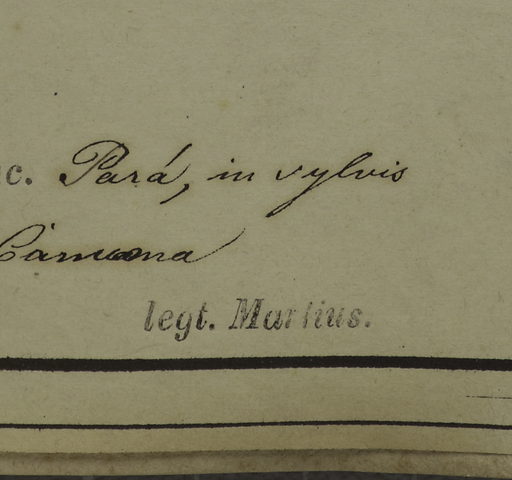 c. Pará, in sylvis
legt. Martius.